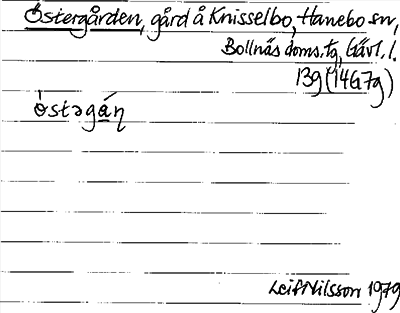 Östergården, gård å Knisselbo, Hanebo sn,
Bollnäs doms. tg, Gävl. l.
13g (14G7g)
östəgáɳ
Leif Nilsson 1979